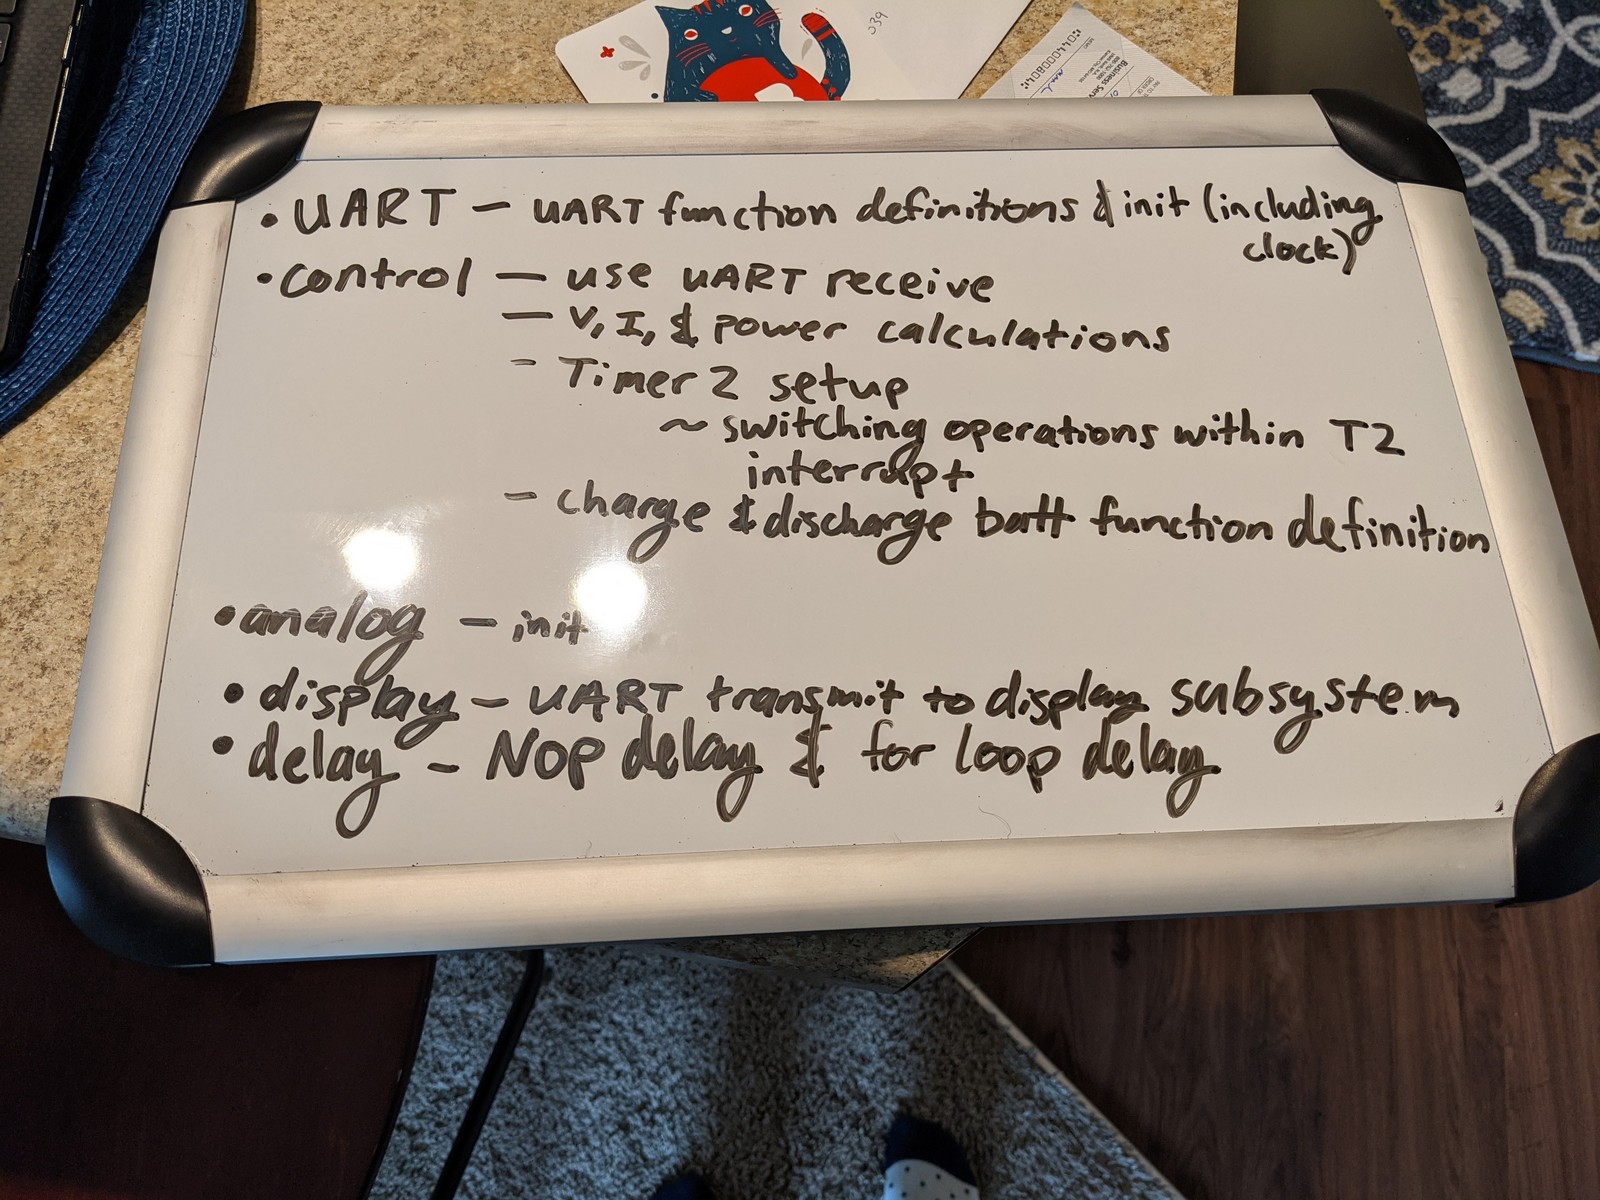 • UART — UART function definitions & init (including
clock)
• control — use UART receive
— V, I, & power calculations
- Timer 2 setup
~ switching operations within T2
interrupt
- charge & discharge batt function definition
• analog — init
• display — UART transmit to display subsystem
• delay - NOP delay & for loop delay
539
Business Serv